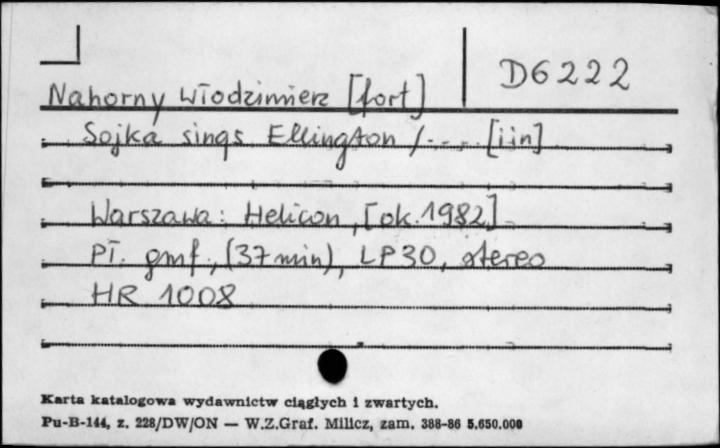 D6222
Nahorny Włodzimierz [fort]
Sojka sings Ellington / .... [i in]
Warszawa: Helicon, [ok. 1982]
Pł. gmf., (37 min), LP30, stereo
HR 1008
Karta katalogowa wydawnictw ciągłych i zwartych.
Pu-B-144, z. 228/DW/ON — W.Z.Graf. Milicz, zam. 388-86 5.650.000